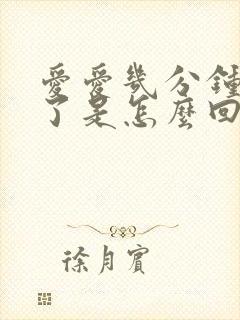 愛愛幾分鐘
了是怎麼回
徐月賓